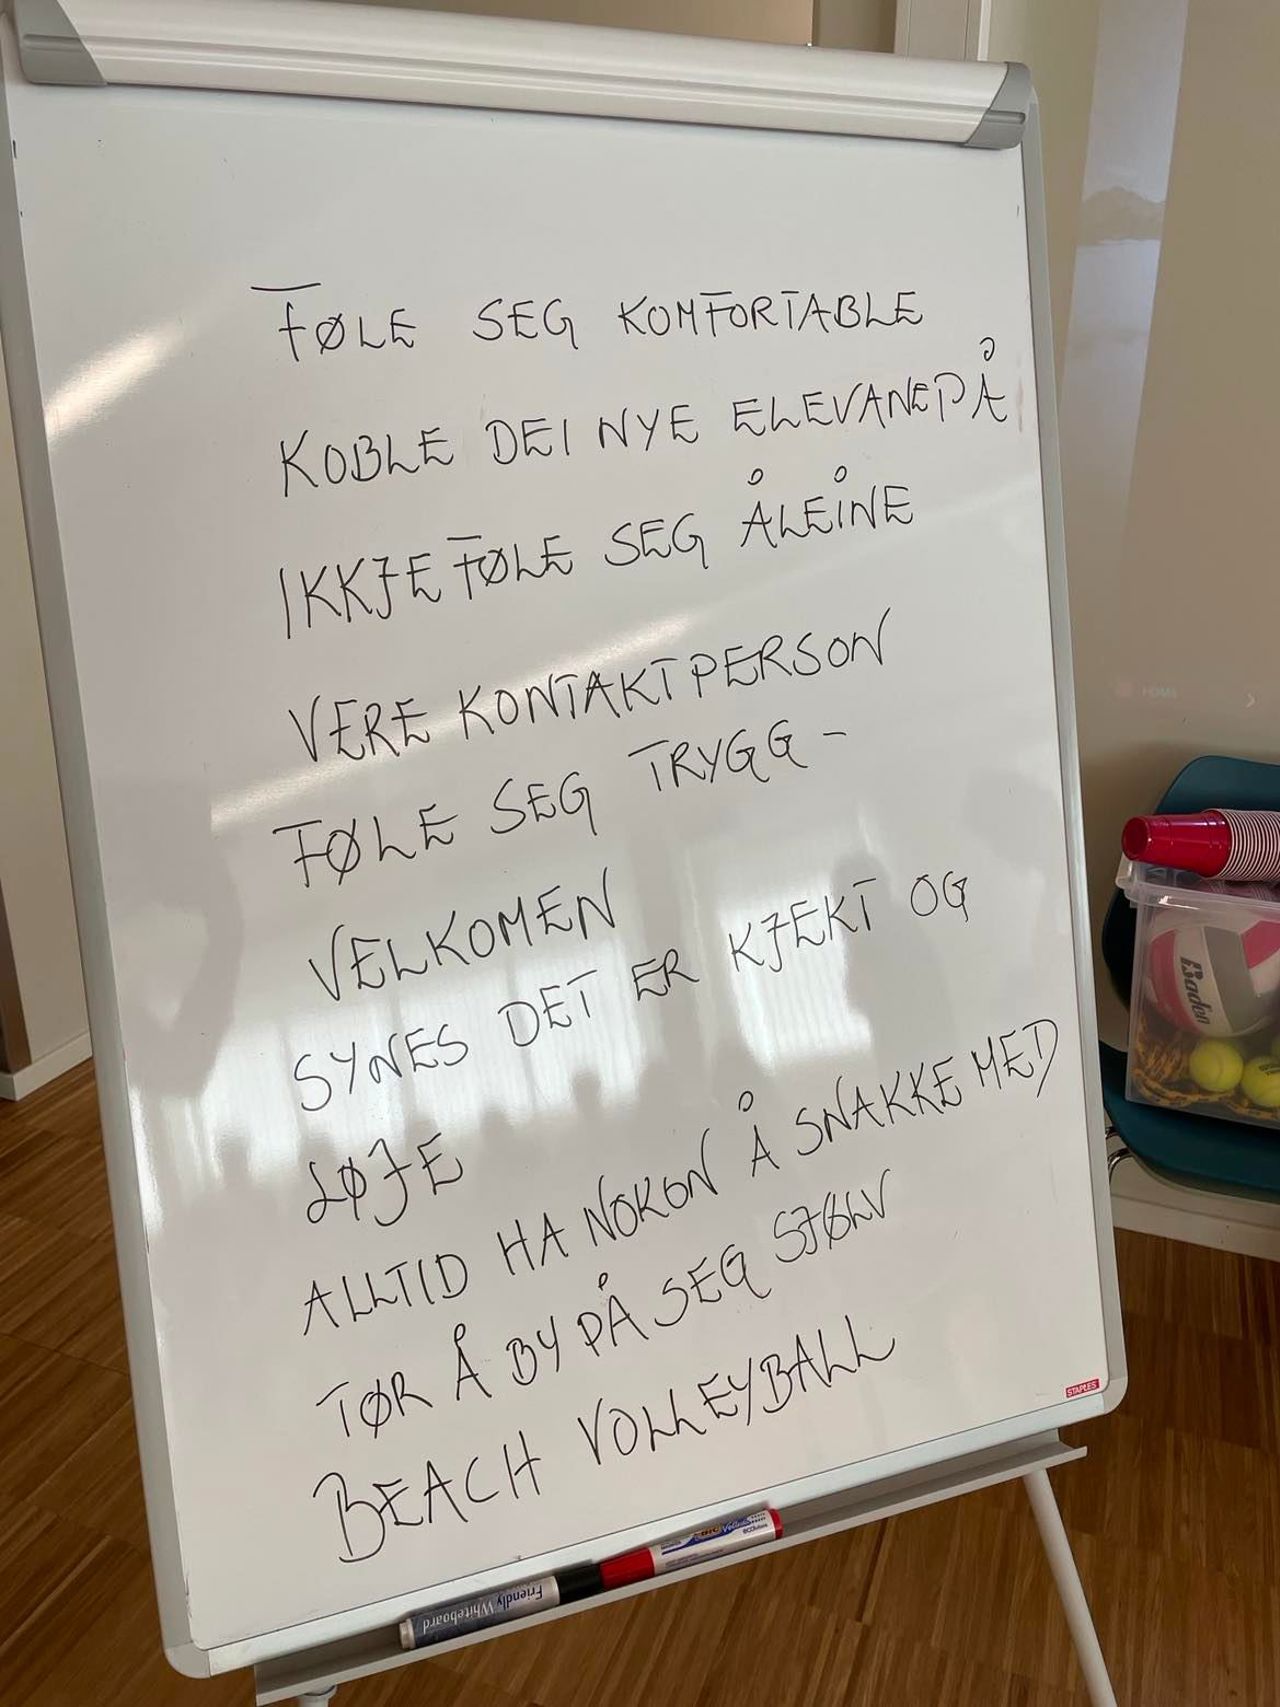 FØLE SEG KOMFORTABLE
KOBLE DEI NYE ELEVANE PÅ
IKKJE FØLE SEG ÅLEINE
VERE KONTAKTPERSON
FØLE SEG TRYGG -
VELKOMEN
SYNES DET ER KJEKT OG
LØJE
ALLTID HA NOKON Å SNAKKE MED
TØR Å BY PÅ SEG SJØLV
BEACH VOLLEYBALL
STAPLES
Baden
HOME
BIC Velleda
ecolutions
Friendly Whiteboard